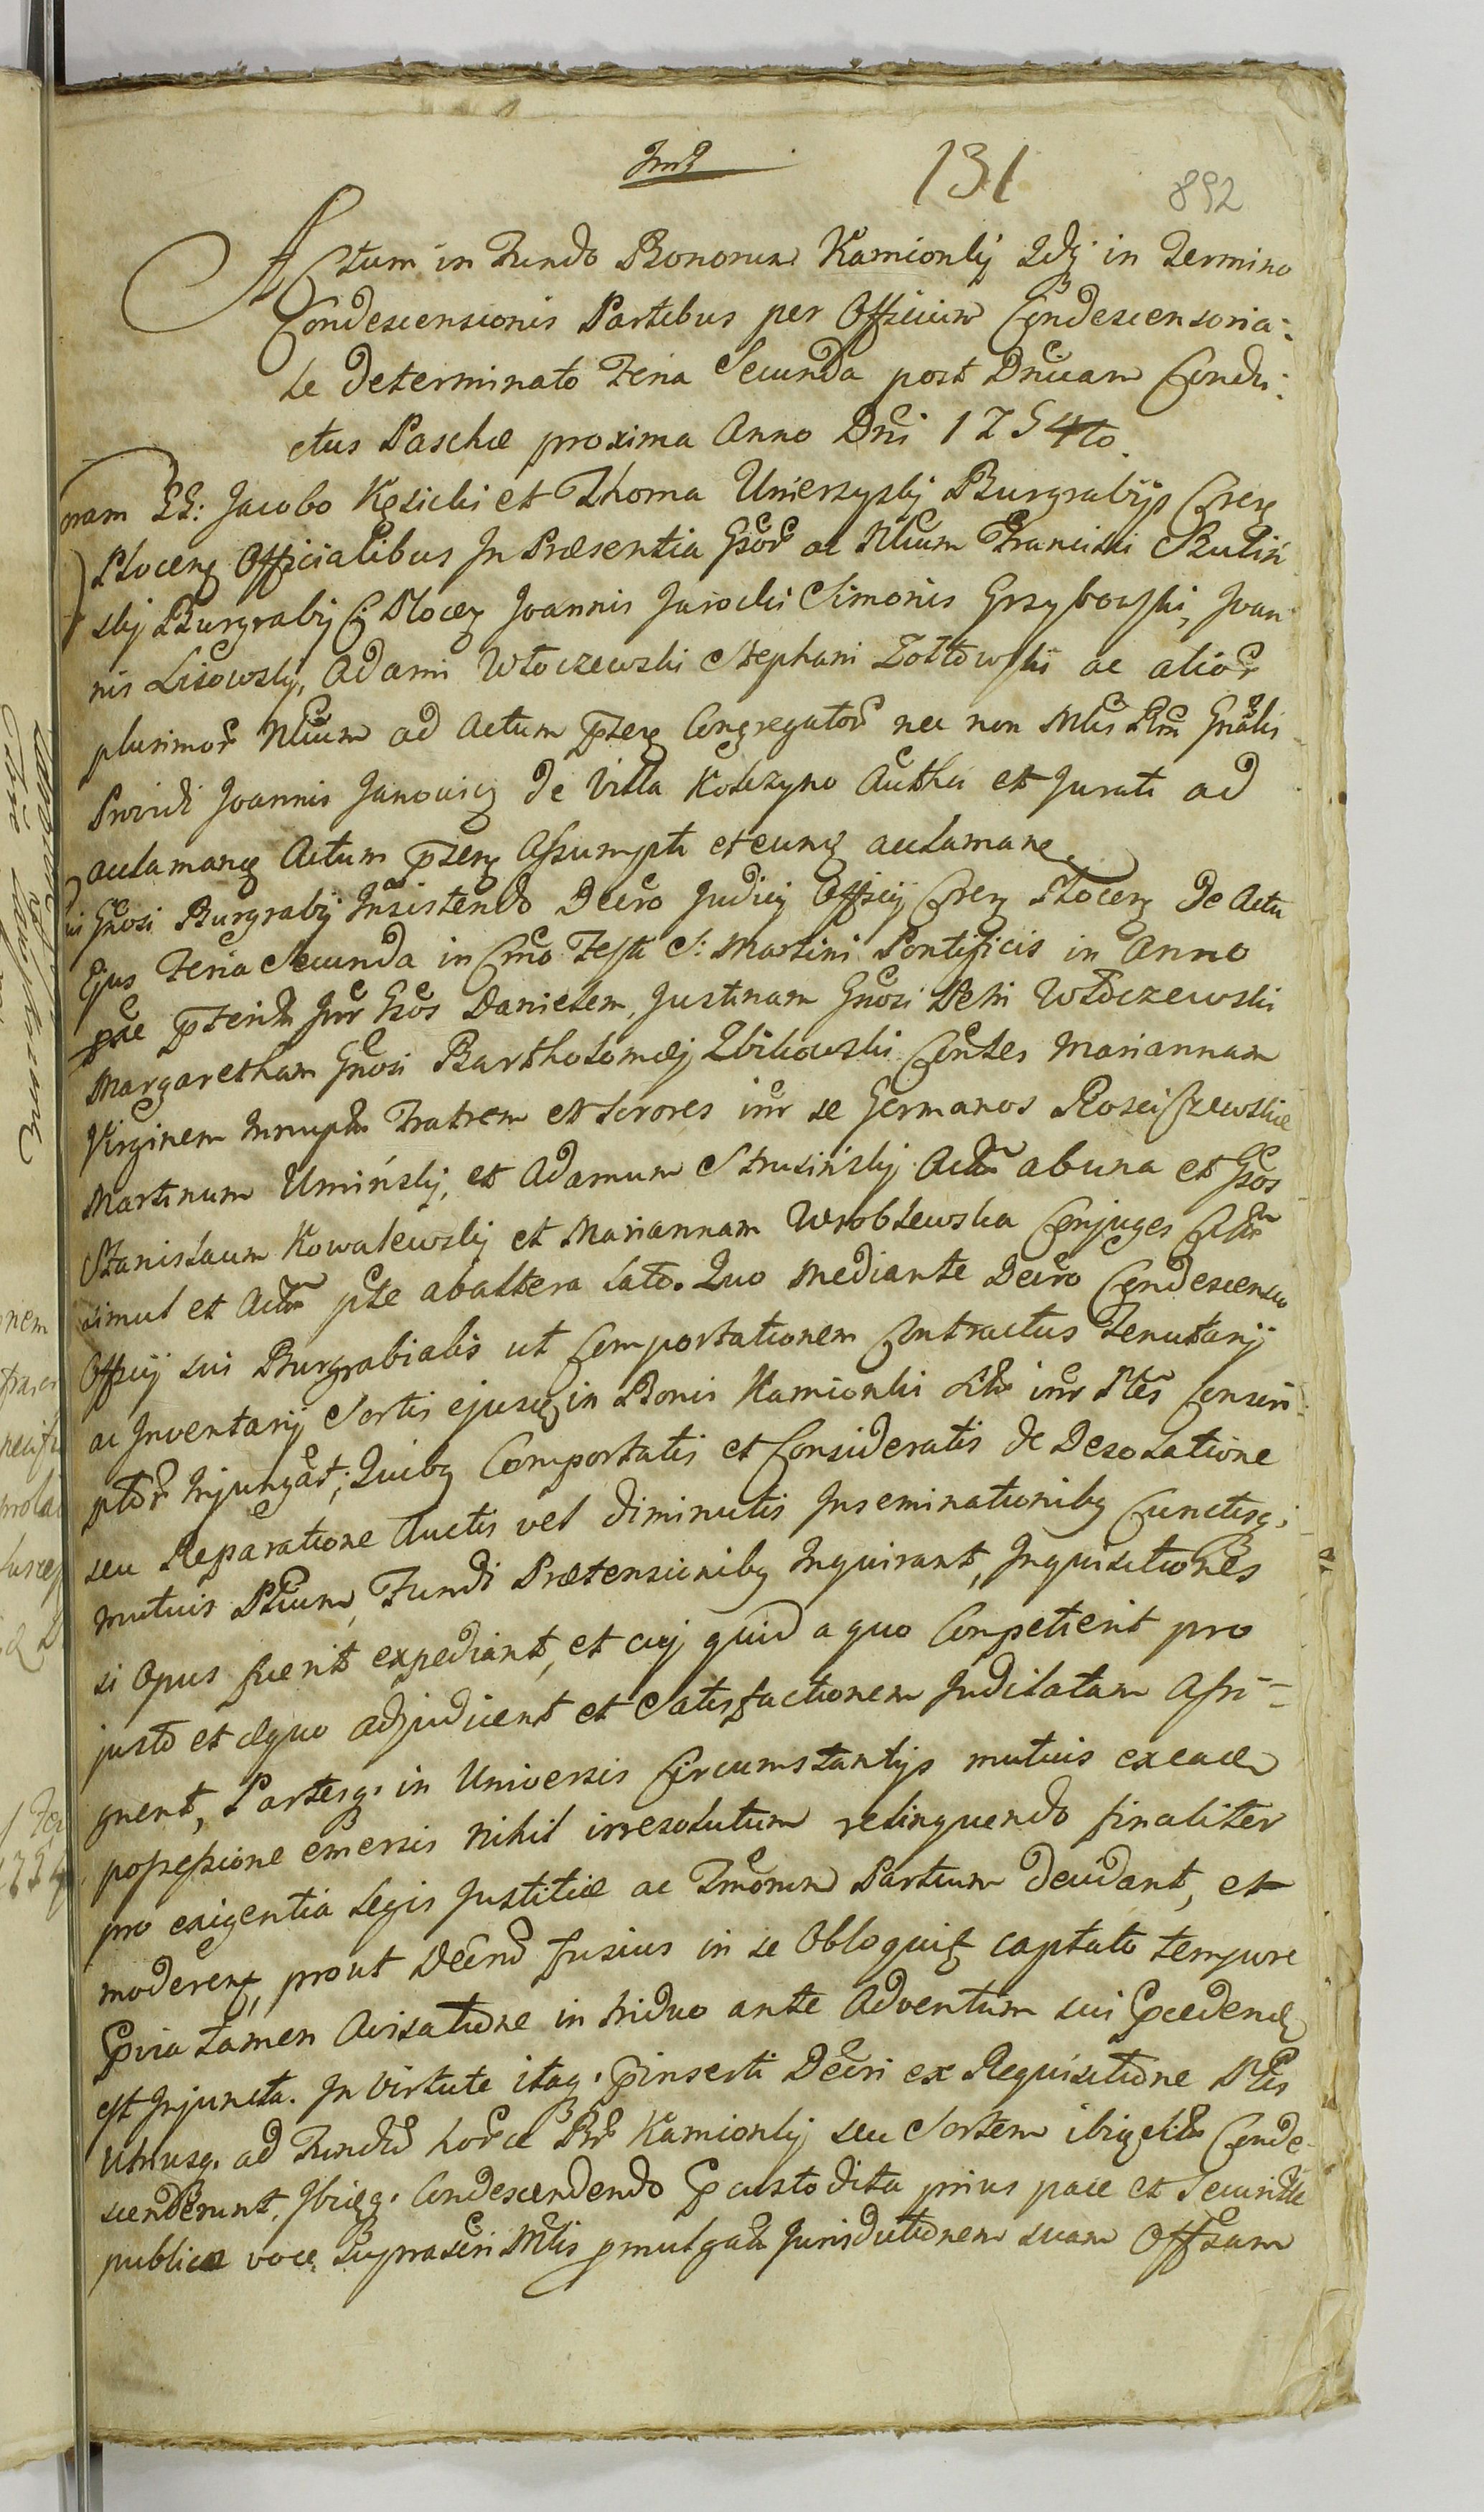 131
892
Actum in Fundo Bonorum Kamionky Idq in Termino
Condescensionis Partibus per Officium Condescensoria:
le determinato Feria Secunda post Dnicam Condu:
ctus Paschæ proxima Anno Dni 1754to.
ram GG: Jacobo Kęsicki et Thoma Umierzysky Burgrabijs Cren
Plocen Officialibus In Præsentia Gsor ac Nlium Francisci Rutin
sky Burgraby C Plocen Joannis Jarocki Simonis Grzybowski, Joan
nis Lisowsky, Adami Włoczewski Stephani Zołtowski ac alior
plurimor Nlium ad Actum pnten Congregator nec non Mlis Rni Gnalis
Providi Joannis Janowicz de Villa Kolczyno Authci et Jurati ad
acclamanq Actum pnten Assumpti eteunq acclamane.
ii Gnosi Burgraby Insistendo Decro Judicy Officy Cren Plocen de Actu
Ejus Feria Secunda in Cmo Festi S: Martini Pontificis in Anno
pnter Intr Gsos Danielem, Justinam Gnosi Petri Włoczewski
Margaretham Gnosi Bartholomæj Zbikowski Contes Mariannam
Virginem Innuptm Fratrem et Sorores intr se Germanos Rosciszewskie
Martinum Umińsky, et Adamum Strusińsky Actr abuna et Gsos
Stanislaum Kowalewsky et Mariannam Wroblewska Conjuges Citts
simul et Actr pte abaltera lato. Quo Mediante Decro Condescenso
Officy sui Burgrabialis ut Comportationem Contractus Tenutarij
ac Inventarij Sortis ejusq in Bonis Kamionki sitæ intr Ptes Conscri
ptor Injungat; Quibq Comportatis et Consideratis de Desolatione
seu Reparatione Auctis vel diminutis Inseminationibq Cunctisq;
mutuis Ptium, Fundi Prætensionibq Inquirant, Inquisitiones
si Opus fuerit expediant, et cuj quid a quo Competierit pro
justo et æquo adjudicent et Satisfactionem Judicatam Assi=
gnent, Partesq. in Universis Circumstantijs mutuis ex eadem
possessione emersis nihil irresolutum relinquendo finaliter
pro exigentia Legis Justitiæ ac Jurium Partium decidant, et
moderent, prout Decrm fusius in se Obloquit captato tempore
Pvia tamen Avisatione in triduo ante Adventum sui Pcedend
est Injuncta. In Virtute itaq. pinserti Decri ex Requisitione Ptis
Utriusq. ad Fundum horce Br Kamionky seu Sortem ibiq sitm Conde
scenderunt. Ibiq. Condescendendo P custodita prius pace et Securitte
publica voce suprascri Mlis pmulgata Jurisdictionem suam Offsam